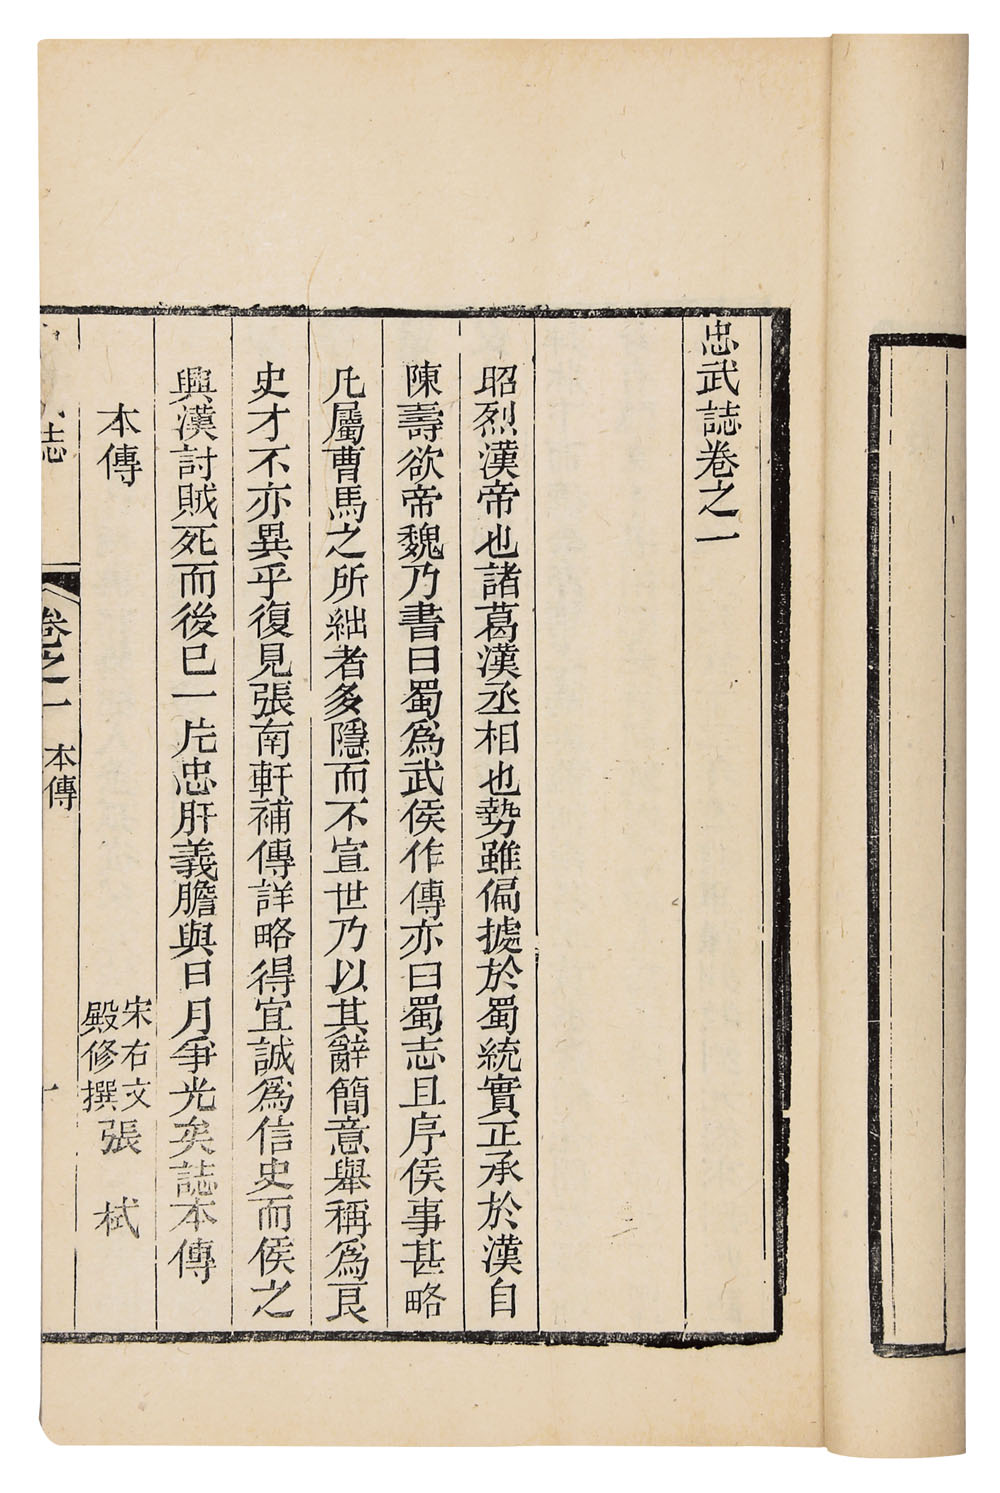 忠武誌卷之一
昭烈漢帝也諸葛漢丞相也勢雖偏據於蜀統實正承於漢自
陳壽欲帝魏乃書曰蜀爲武侯作傳亦曰蜀志且序侯事甚略
凡屬曹馬之所絀者多隱而不宣世乃以其辭簡意舉稱爲良
史才不亦異乎復見張南軒補傳詳略得宜誠爲信史而侯之
興漢討賊死而後已一片忠肝義膽與日月爭光矣誌本傳
本傳 宋右文殿修撰張栻
誌 卷之一 本傳